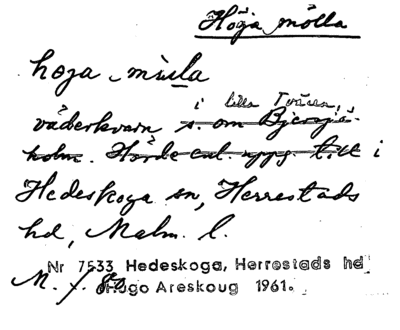 Höja mölla
hoja mùlla
i lilla Tvären,
väderkvarn s. om Bjersjö-
holm. Hörde enl. uppg. till i
Hedeskoga sn, Herrestads
hd, Malm. l.
Nr 7533 Hedeskoga, Herrestads hd
M. /.
Hugo Areskoug 1961.